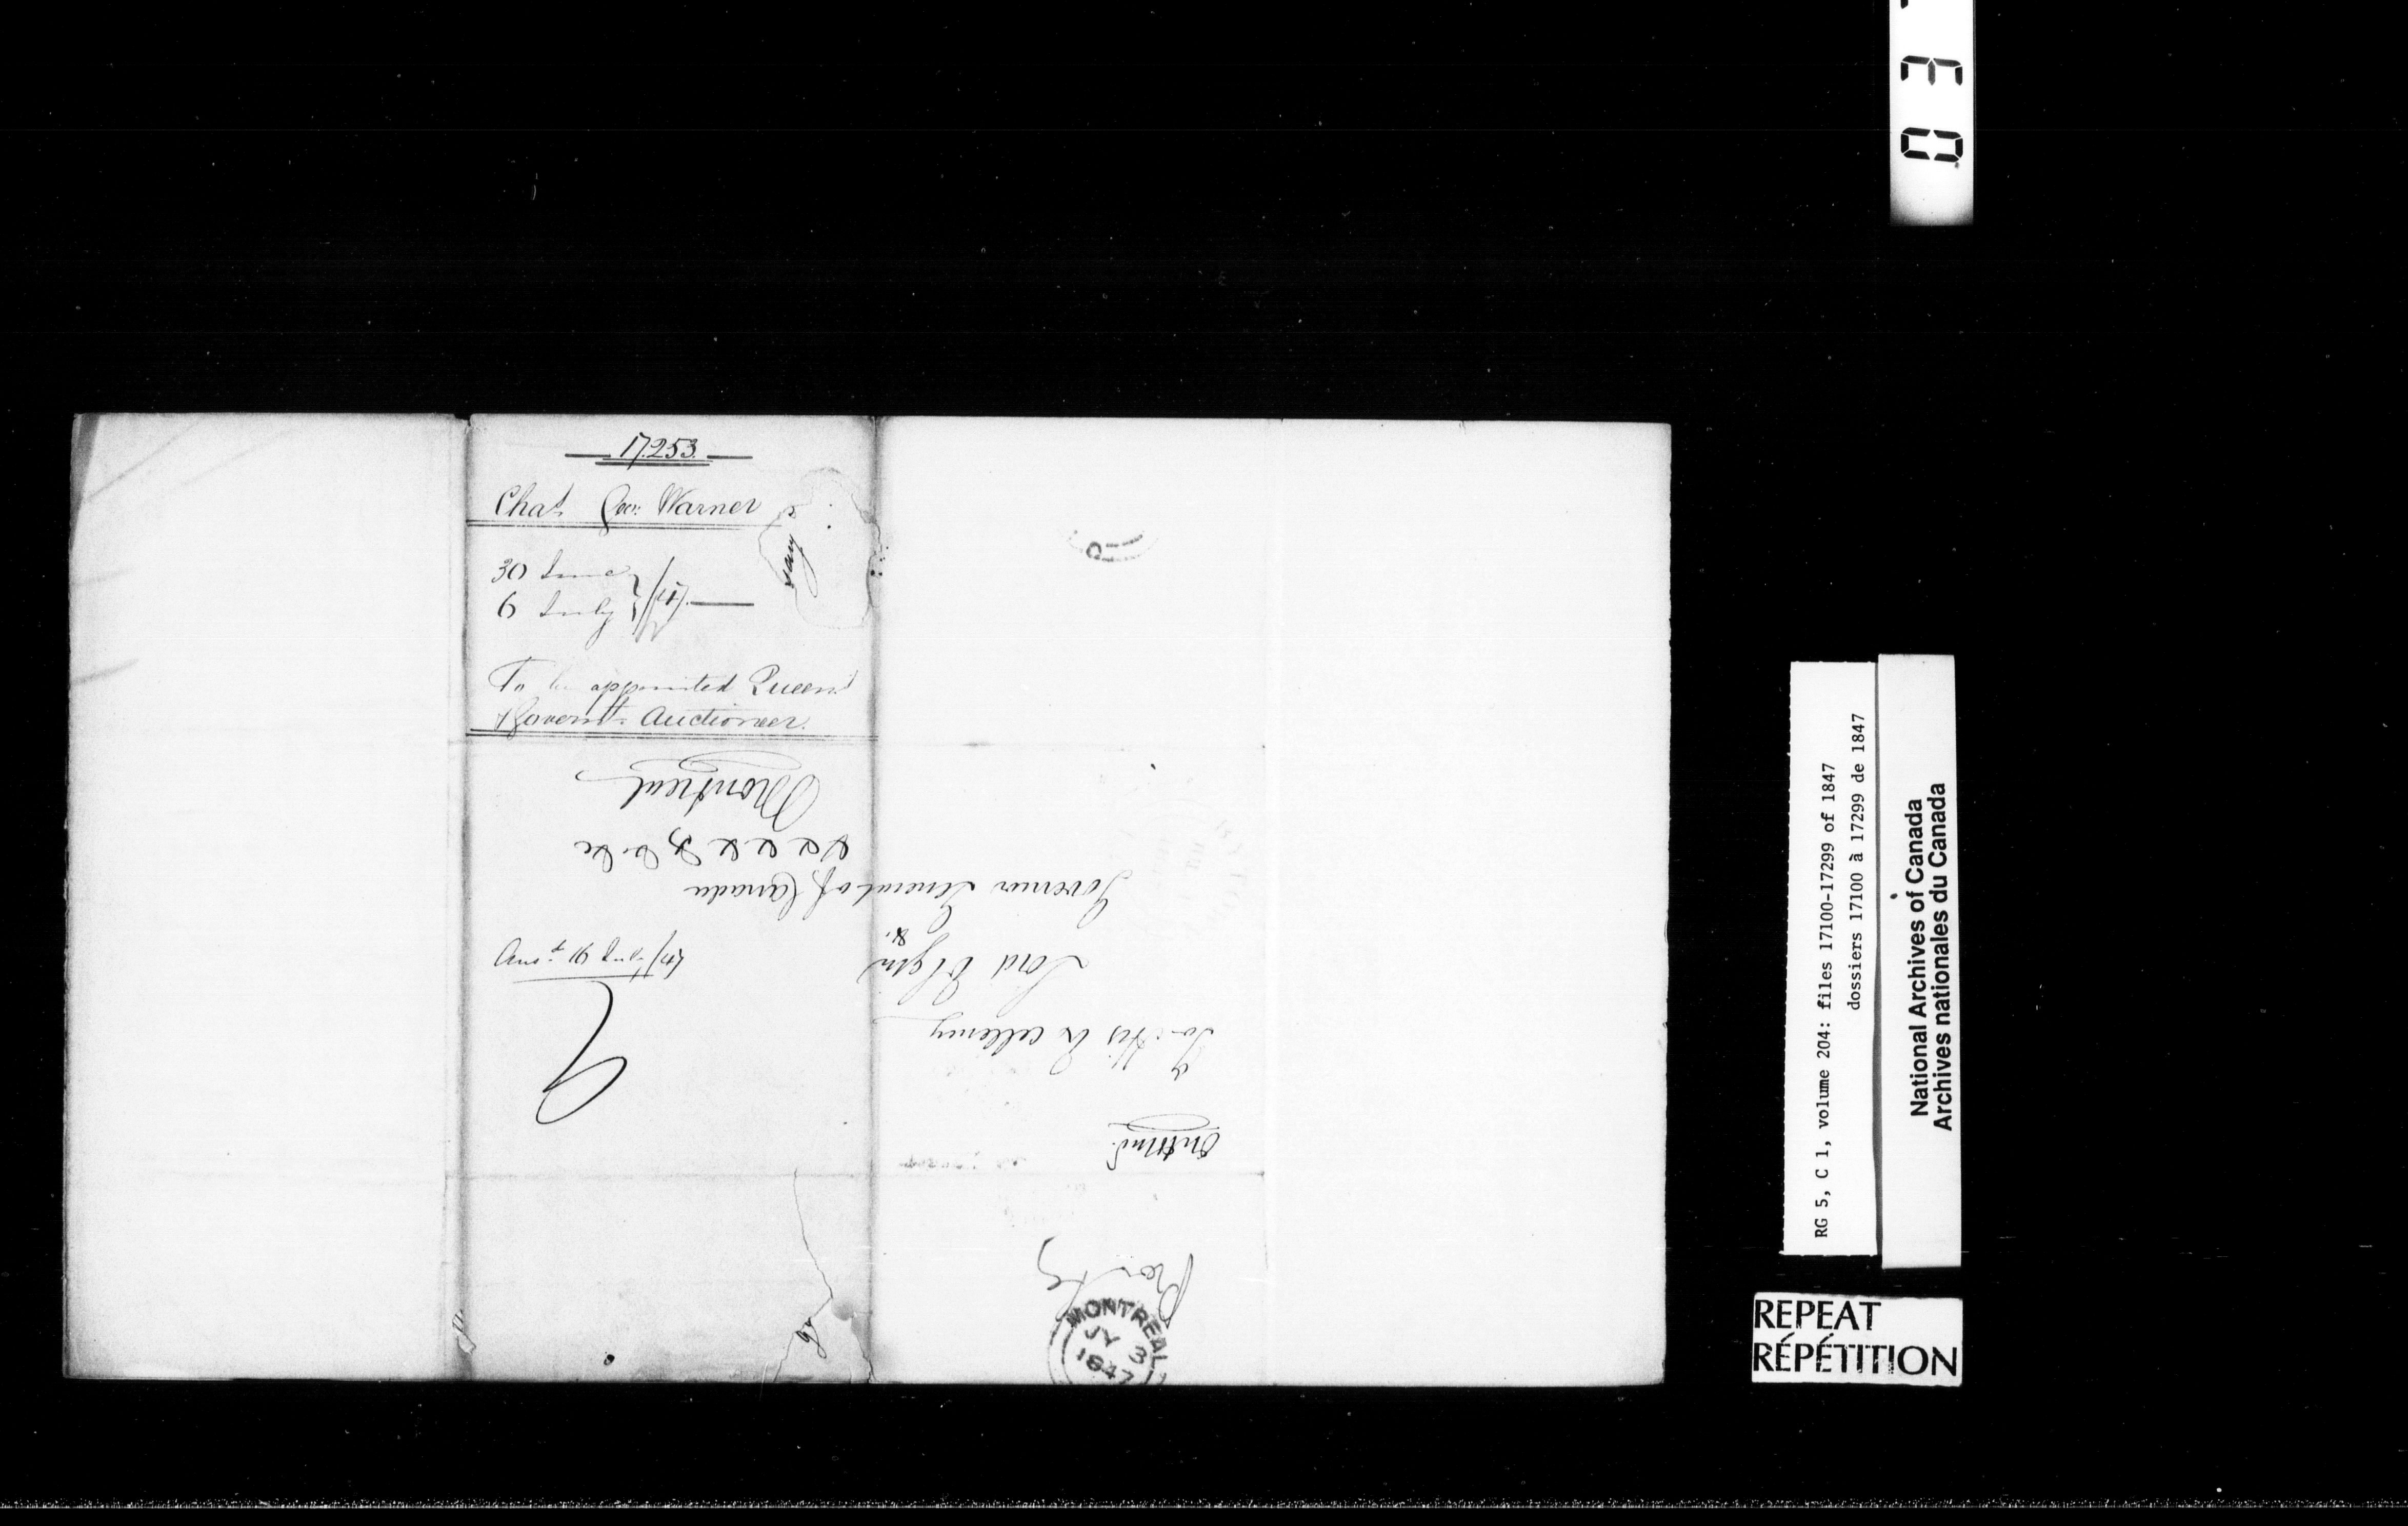 17.253.
Chas. Geo: Warner
30 June
6 July } /47.
To be appointed Queen's
Governt. Auctioneer.
Ansd. 16 July /47
OnHMS.
To His Excellency
Lord Elgin
&.
Governor General of Canada
&c &c &c
Montreal
MONTREAL
JY 3
1847
0 3
RG 5, C 1, volume 204: files 17100-17299 of 1847
dossiers 17100 à 17299 de 1847
National Archives of Canada
Archives nationales du Canada
REPEAT
RÉPÉTITION